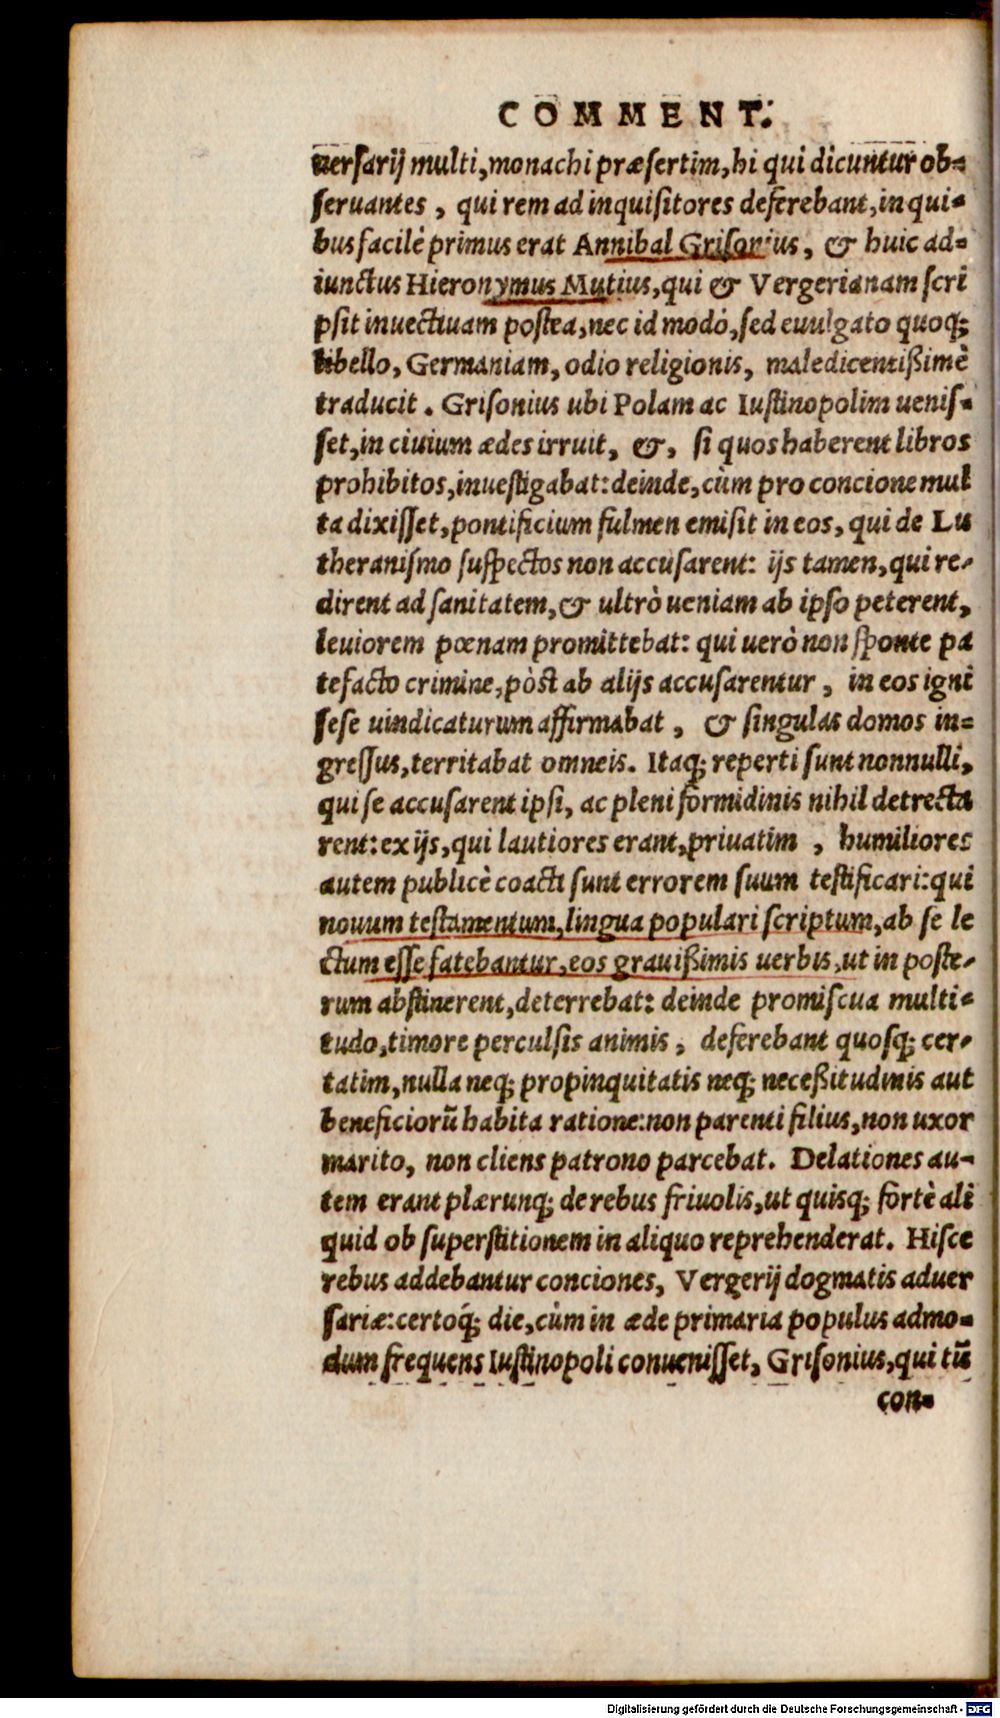 COMMENT.
uersarij multi, monachi præsertim, hi qui dicuntur ob-
seruantes, qui rem ad inquisitores deferebant, in qui-
bus facilè primus erat Annibal Grisonius, & huic ad-
iunctus Hieronymus Mutius, qui & Vergerianam scri
psit inuectiuam postea, nec id modò, sed euulgato quoq;
libello, Germaniam, odio religionis, maledicentißimè
traducit. Grisonius ubi Polam ac Iustinopolim uenis-
set, in ciuium ædes irruit, &, si quos haberent libros
prohibitos, inuestigabat: deinde, cùm pro concione mul
ta dixisset, pontificium fulmen emisit in eos, qui de Lu
theranismo suspectos non accusarent: ijs tamen, qui re-
dirent ad sanitatem, & ultrò ueniam ab ipso peterent,
leuiorem pœnam promittebat: qui uerò non sponte pa
tefacto crimine, pòst ab alijs accusarentur, in eos igni
sese uindicaturum affirmabat, & singulas domos in-
gressus, territabat omneis. Itaq; reperti sunt nonnulli,
qui se accusarent ipsi, ac pleni formidinis nihil detrecta
rent: ex ijs, qui lautiores erant, priuatim, humiliores
autem publicè coacti sunt errorem suum testificari: qui
nouum testamentum, lingua populari scriptum, ab se le
ctum esse fatebantur, eos grauißimis uerbis, ut in poste-
rum abstinerent, deterrebat: deinde promiscua multi-
tudo, timore perculsis animis, deferebant quosq; cer-
tatim, nulla neq; propinquitatis neq; neceßitudinis aut
beneficiorũ habita ratione: non parenti filius, non uxor
marito, non cliens patrono parcebat. Delationes au-
tem erant plærunq; de rebus friuolis, ut quisq; fortè ali
quid ob superstitionem in aliquo reprehenderat. Hisce
rebus addebantur conciones, Vergerij dogmatis aduer
sariæ: certoq́; die, cùm in æde primaria populus admo-
dum frequens Iustinopoli conuenisset, Grisonius, qui tũ
con-
Digitalisierung gefördert durch die Deutsche Forschungsgemeinschaft - DFG